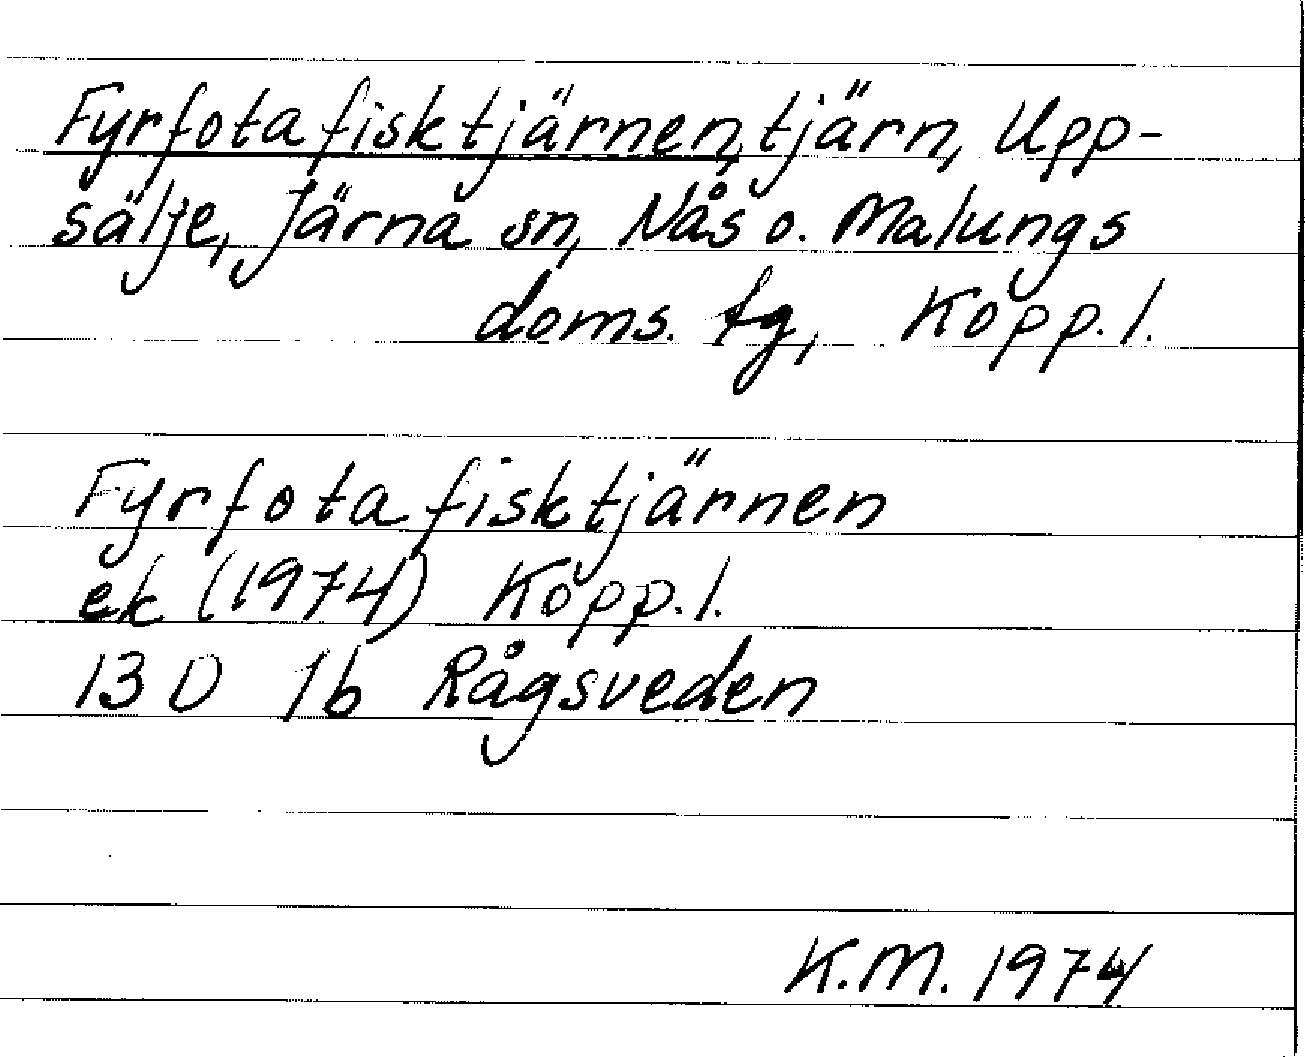 Fyrfotafisktjärnen, tjärn, Upp-
sälje, Järna sn, Nås o. Malungs
doms. tg, Kopp. l.
Fyrfotafisktjärnen
ek (1974) Kopp. l.
13 D 1b Rågsveden
K.M. 1974